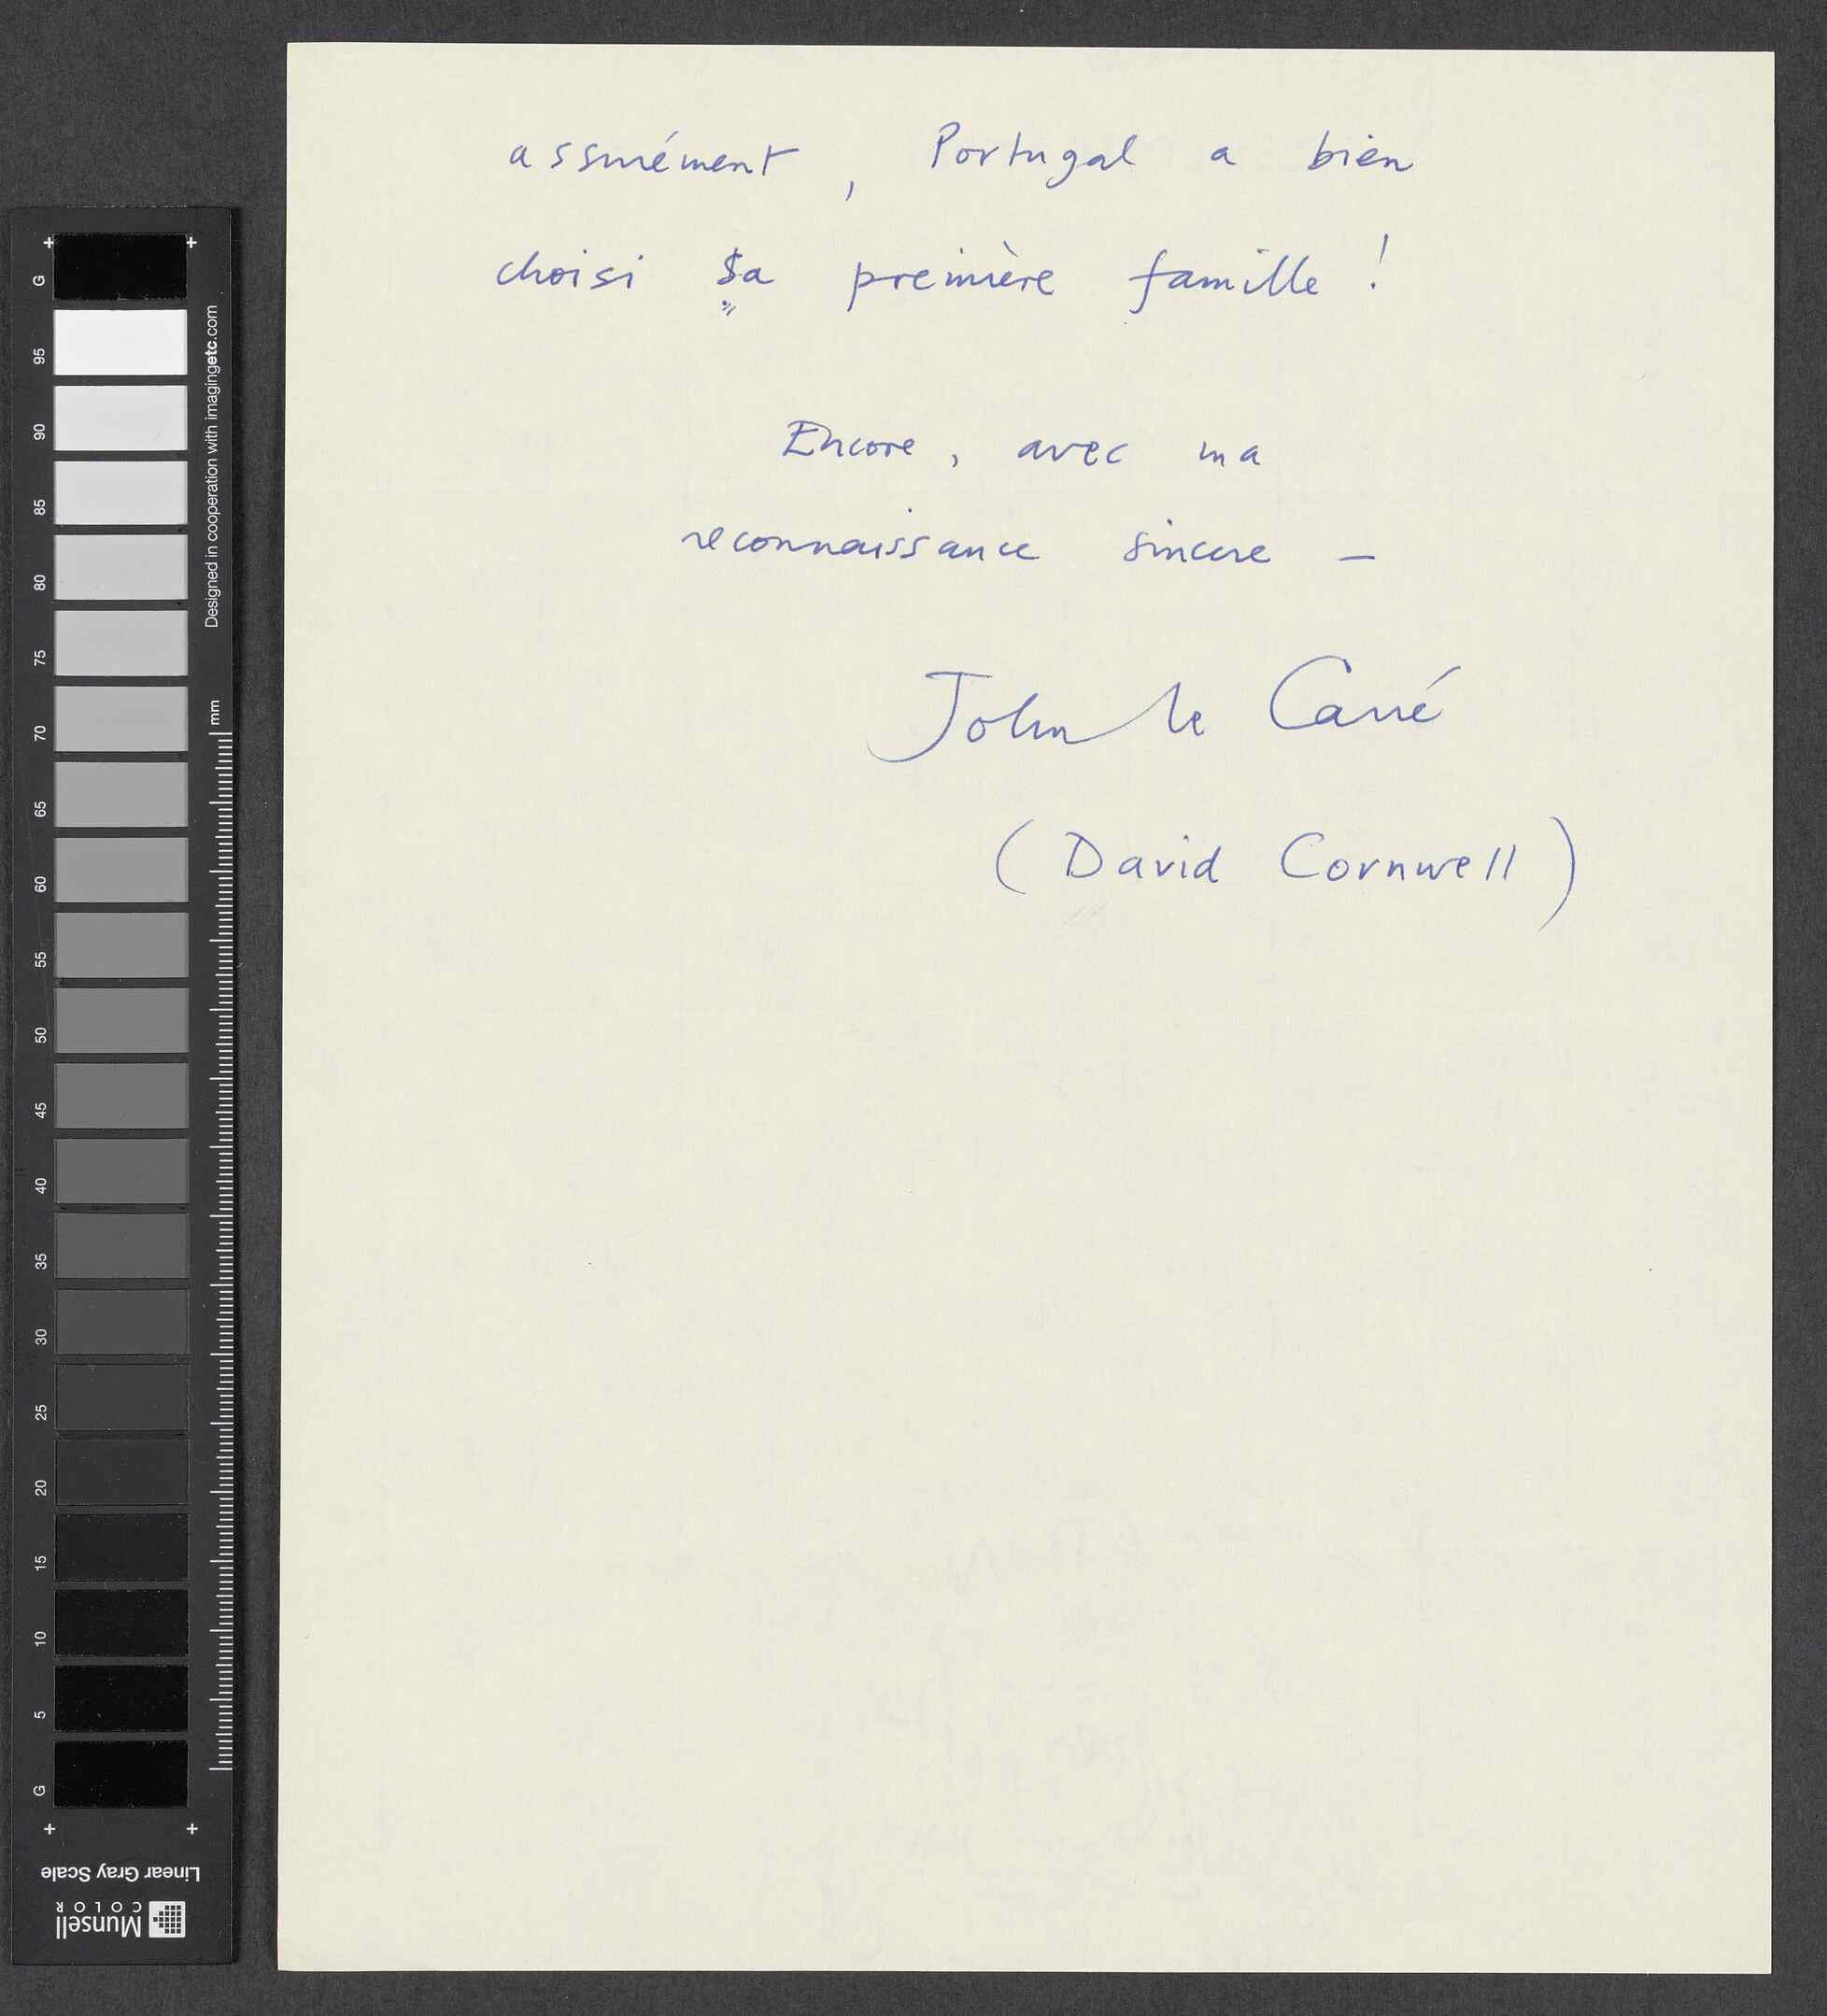 assurément, Portugal a bien
choisi sa première famille !
Encore, avec ma
reconnaissance sincere —
John le Carré
(David Cornwell)
G
95
90
85
80
75
70
65
60
55
50
45
40
35
30
25
20
15
10
5
G
Designed in cooperation with imagingetc.com
mm
Linear Gray Scale
Munsell
COLOR